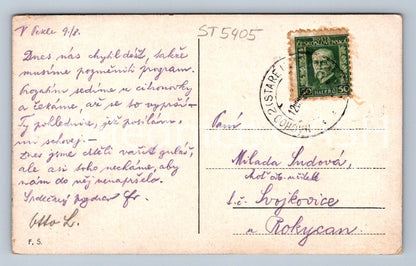 V Pešle 9/8.
ST5905
Dnes nás chytil déšť, takže
musíme pozměniti program.
sedíme u cihovonky
a čekáme, až se to vyprší-
Ty pohlednice, jež posílám,
mi schovej.-
Dnes jsme chtěli vařit guláš,
ale asi toho necháme, aby
nám do něj nenapršelo.
Srdečný pozdrav Fr.
Otto L.
F. S.
ČESKOSLOVENSKA
50 HALÉŘŮ 50
STARÉ
Paní
Milada Šudová,
choť
I. č. Svojkovice
u Rokycan